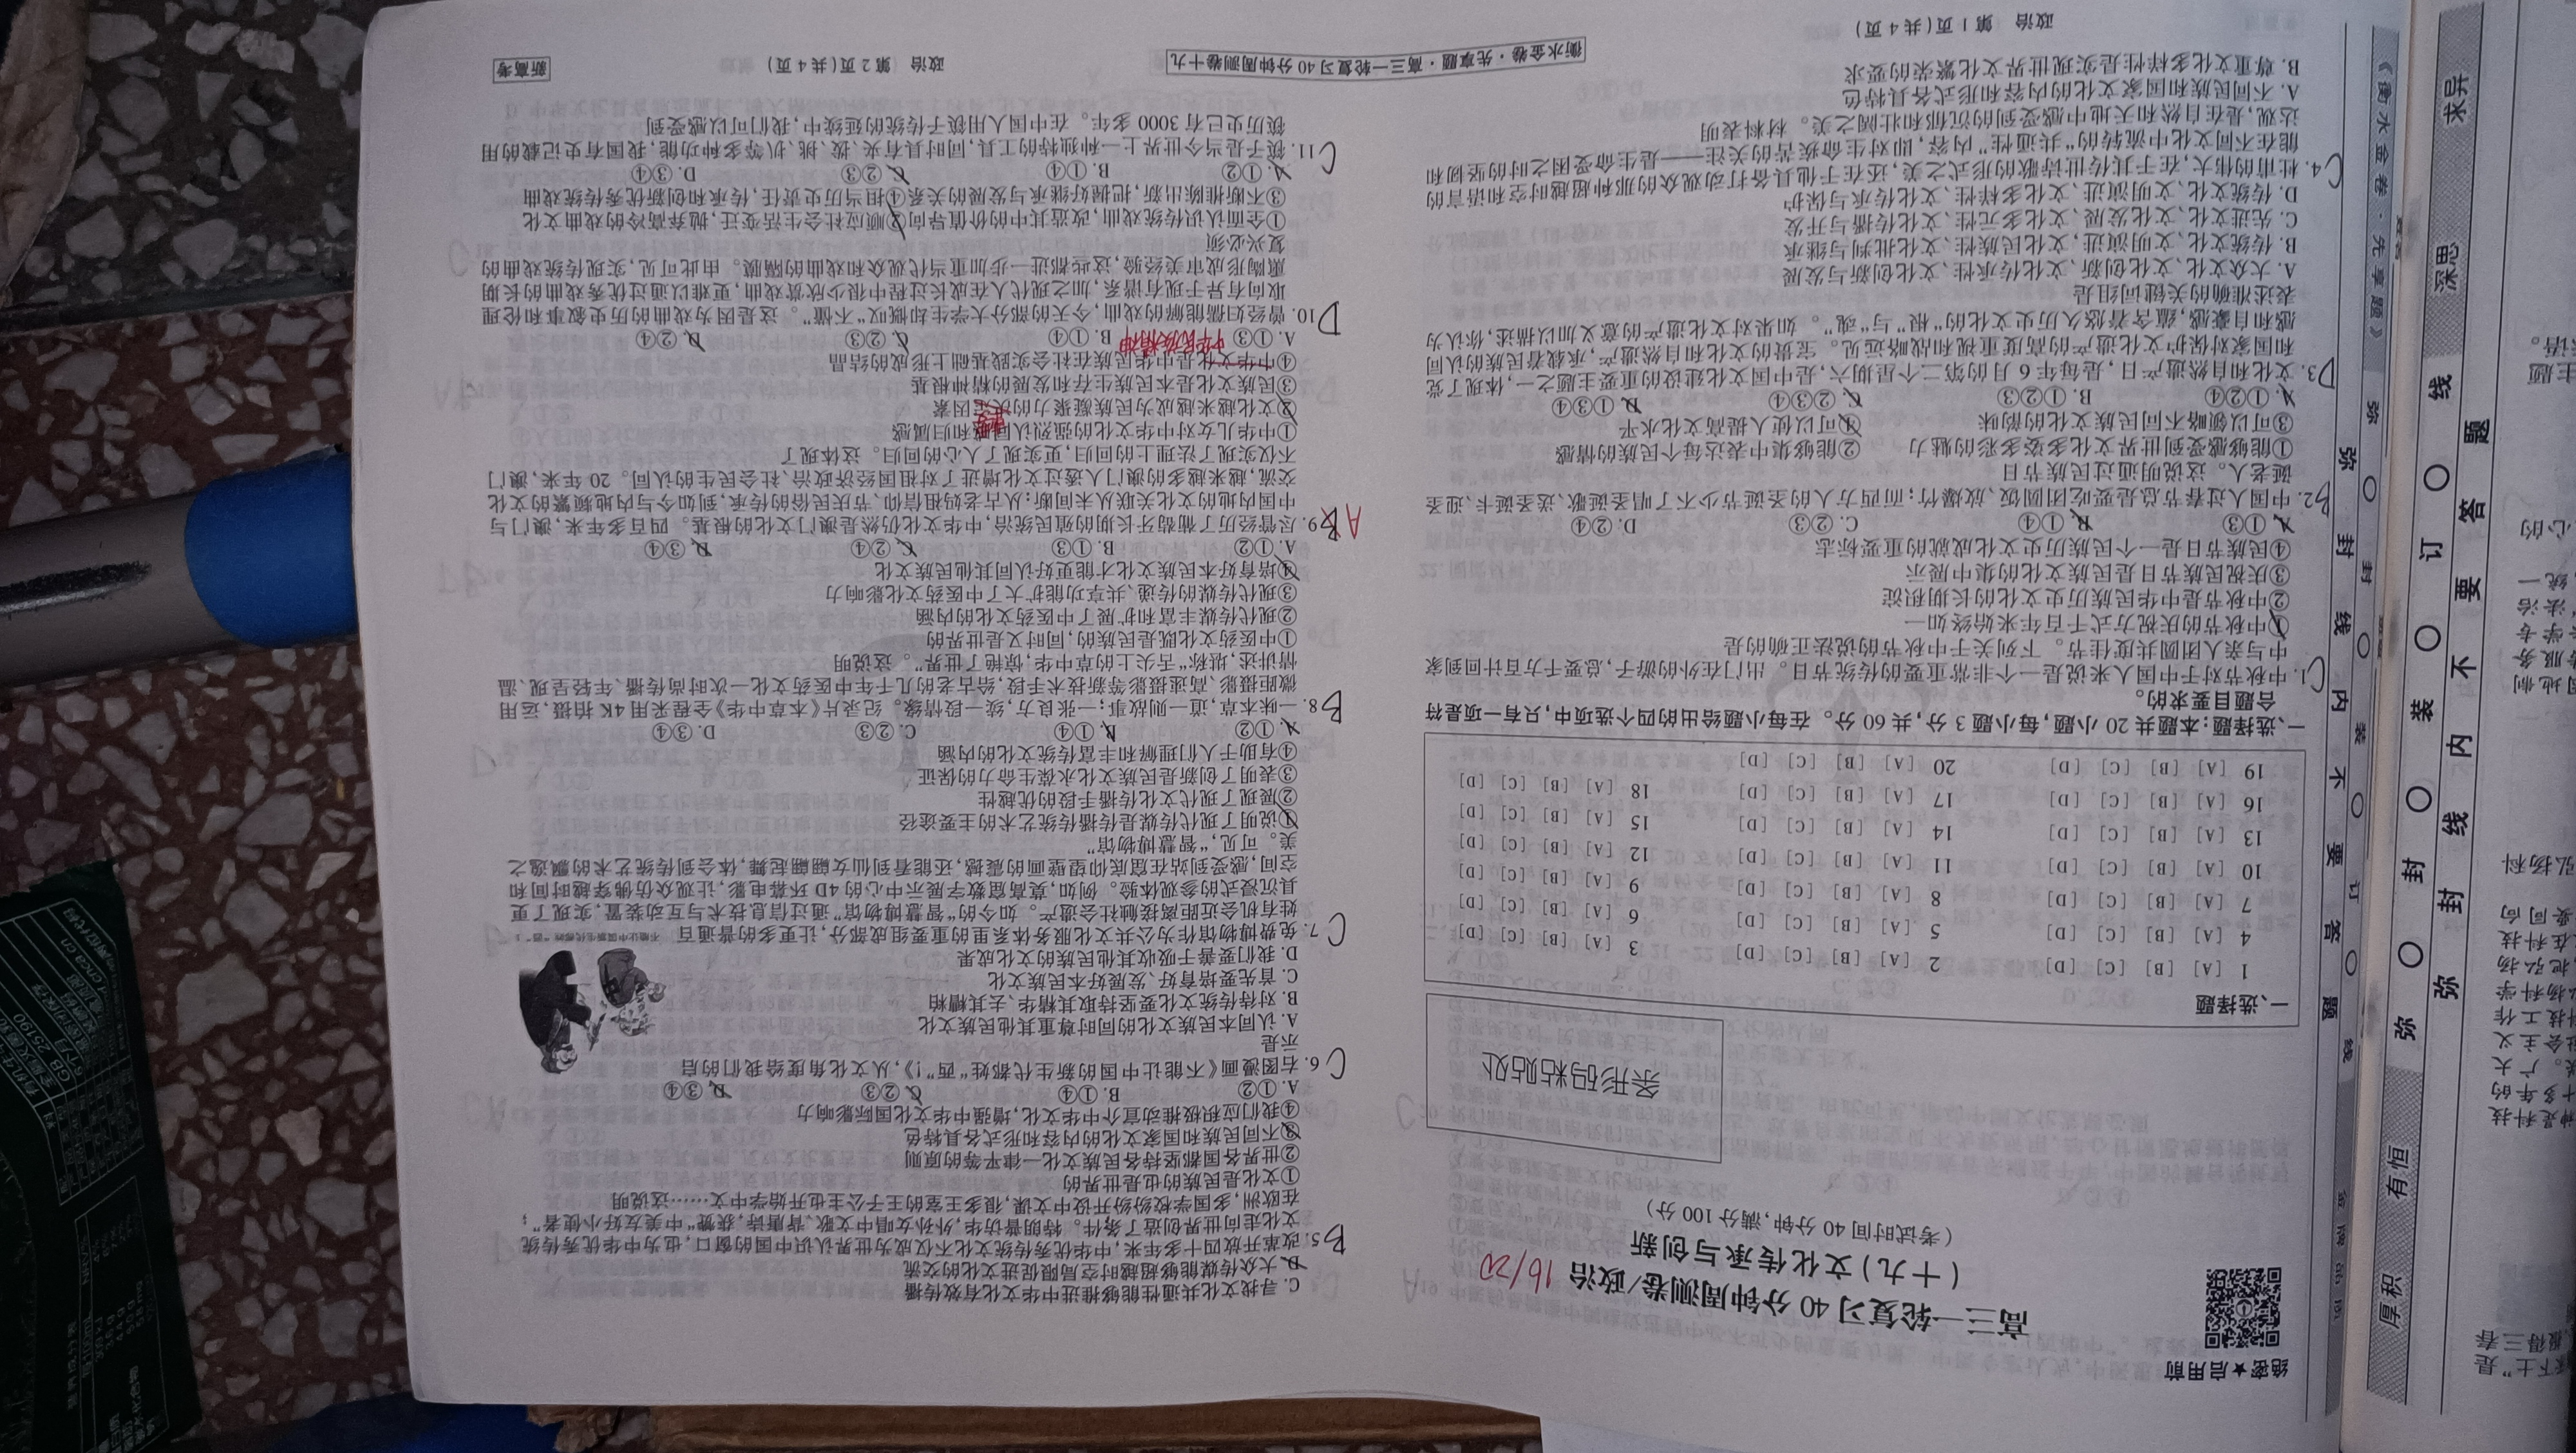 绝密★启用前
高三一轮复习40分钟周测卷/政治 16/20
（十九）文化传承与创新
（考试时间40分钟,满分100分）
条形码粘贴处
一、选择题
1 [A] [B] [C] [D] 2 [A] [B] [C] [D] 3 [A] [B] [C] [D]
4 [A] [B] [C] [D] 5 [A] [B] [C] [D] 6 [A] [B] [C] [D]
7 [A] [B] [C] [D] 8 [A] [B] [C] [D] 9 [A] [B] [C] [D]
10 [A] [B] [C] [D] 11 [A] [B] [C] [D] 12 [A] [B] [C] [D]
13 [A] [B] [C] [D] 14 [A] [B] [C] [D] 15 [A] [B] [C] [D]
16 [A] [B] [C] [D] 17 [A] [B] [C] [D] 18 [A] [B] [C] [D]
19 [A] [B] [C] [D] 20 [A] [B] [C] [D]
一、选择题:本题共20小题,每小题3分,共60分。在每小题给出的四个选项中,只有一项是符
合题目要求的。
C 1. 中秋节对于中国人来说是一个非常重要的传统节日。出门在外的游子,总要千方百计回到家
中与亲人团圆共度佳节。下列关于中秋节的说法正确的是
①中秋节的庆祝方式千百年来始终如一
②中秋节是中华民族历史文化的长期积淀
③庆祝民族节日是民族文化的集中展示
④民族节日是一个民族历史文化成就的重要标志
A. ①③ B. ①④ C. ②③ D. ②④
B 2. 中国人过春节总是要吃团圆饭、放爆竹;而西方人的圣诞节少不了唱圣诞歌、送圣诞卡、迎圣
诞老人。这说明通过民族节日
①能够感受到世界文化多姿多彩的魅力 ②能够集中表达每个民族的情感
③可以领略不同民族文化的韵味 ④可以使人提高文化水平
A. ①②④ B. ①②③ C. ②③④ D. ①③④
D 3. 文化和自然遗产日,是每年6月的第二个星期六,是中国文化建设的重要主题之一,体现了党
和国家对保护文化遗产的高度重视和战略远见。宝贵的文化和自然遗产,承载着民族的认同
感和自豪感,蕴含着悠久历史文化的“根”与“魂”。如果对文化遗产的意义加以描述,你认为
表述准确的关键词组是
A. 大众文化、文化创新、文化传承性、文化创新与发展
B. 传统文化、文明演进、文化民族性、文化批判与继承
C. 先进文化、文化发展、文化多元性、文化传播与开发
D. 传统文化、文明演进、文化多样性、文化传承与保护
C 4. 杜甫的伟大,在于其传世诗歌的形式之美,还在于他具备打动观众的那种超越时空和语言的
能在不同文化中流转的“共通性”内容,即对生命疾苦的关注——是生命受困之时的坚韧和
达观,是在自然和天地中感受到的沉郁和壮阔之美。材料表明
A. 不同民族和国家文化的内容和形式各具特色
B. 尊重文化多样性是实现世界文化繁荣的要求
政治 第1页(共4页)
C. 寻找文化共通性能够推进中华文化有效传播
D. 大众传媒能够超越时空局限促进文化的交流
B 5. 改革开放四十多年来,中华优秀传统文化不仅成为世界认识中国的窗口,也为中华优秀传统
文化走向世界创造了条件。特朗普访华,外孙女唱中文歌、背唐诗,获赞“中美友好小使者”;
在欧洲,多国学校纷纷开设中文课,很多王室的王子公主也开始学中文……这说明
①文化是民族的也是世界的
②世界各国都坚持各民族文化一律平等的原则
③不同民族和国家文化的内容和形式各具特色
④我们应积极推动宣介中华文化,增强中华文化国际影响力
A. ①② B. ①④ C. ②③ D. ③④
C 6. 右图漫画《不能让中国的新生代都姓“西”!》,从文化角度给我们的启
示是
A. 认同本民族文化的同时尊重其他民族文化
B. 对待传统文化要坚持取其精华、去其糟粕
C. 首先要培育好、发展好本民族文化
D. 我们要善于吸收其他民族的文化成果
C 7. 免费博物馆作为公共文化服务体系里的重要组成部分,让更多的普通百
姓有机会近距离接触社会遗产。如今的“智慧博物馆”通过信息技术与互动装置,实现了更
具沉浸式的参观体验。例如,莫高窟数字展示中心的4D环幕电影,让观众仿佛穿越时间和
空间,感受到站在窟底仰望壁画的震撼,还能看到仙女翩翩起舞,体会到传统艺术的飘逸之
美。可见,“智慧博物馆”
①说明了现代传媒是传播传统艺术的主要途径
②展现了现代文化传播手段的优越性
③表明了创新是民族文化永葆生命力的保证
④有助于人们理解和丰富传统文化的内涵
A. ①② B. ①④ C. ②③ D. ③④
B 8. 一味本草,道一则故事;一张良方,续一段情缘。纪录片《本草中华》全程采用4K拍摄,运用
微距摄影、高速摄影等新技术手段,给古老的几千年中医药文化一次时尚传播、年轻呈现、温
情讲述,堪称“舌尖上的草中华,惊艳了世界”。这说明
①中医药文化既是民族的,同时又是世界的
②现代传媒丰富和扩展了中医药文化的内涵
③现代传媒的传递、共享功能扩大了中医药文化影响力
④培育好本民族文化才能更好认同其他民族文化
A. ①② B. ①③ C. ②④ D. ③④
A B 9. 尽管经历了葡萄牙长期的殖民统治,中华文化仍然是澳门文化的根基。四百多年来,澳门与
中国内地的文化关联从未间断:从古老妈祖信仰、节庆民俗的传承,到如今与内地频繁的文化
交流,越来越多的澳门人透过文化增进了对祖国经济政治、社会民生的认同。20年来,澳门
不仅实现了法理上的回归,更实现了人心的回归。这体现了
①中华儿女对中华文化的强烈认同感和归属感
②文化越来越成为民族凝聚力的决定因素
重要
③民族文化是本民族生存和发展的精神根基
④中华文化是中华民族在社会实践基础上形成的结晶
中华民族精神
A. ①③ B. ①④ C. ②③ D. ②④
D 10. 曾经妇孺能解的戏曲,今天的部分大学生却慨叹“不懂”。这是因为戏曲的历史叙事和伦理
取向有异于现有谱系,加之现代人在成长过程中很少欣赏戏曲,更难以通过优秀戏曲的长期
熏陶形成审美经验,这些都进一步加重当代观众和戏曲的隔膜。由此可见,实现传统戏曲的
复兴必须
①全面认识传统戏曲,改造其中的价值导向②顺应社会生活变迁,抛弃高冷的戏曲文化
③不断推陈出新,把握好继承与发展的关系④担当历史责任,传承和创新优秀传统戏曲
A. ①② B. ①④ C. ②③ D. ③④
C 11. 筷子是当今世界上一种独特的工具,同时具有夹、拨、挑、扒等多种功能,我国有史记载的用
筷历史已有3000多年。在中国人用筷子传统的延续中,我们可以感受到
衡水金卷·先享题·高三一轮复习40分钟周测卷十九
政治 第2页(共4页)
新高考
《衡水金卷·先享题》
弥 封 线 内 不 要 答 题
厚积 有恒 深思 求异
弥 封 装 订 线